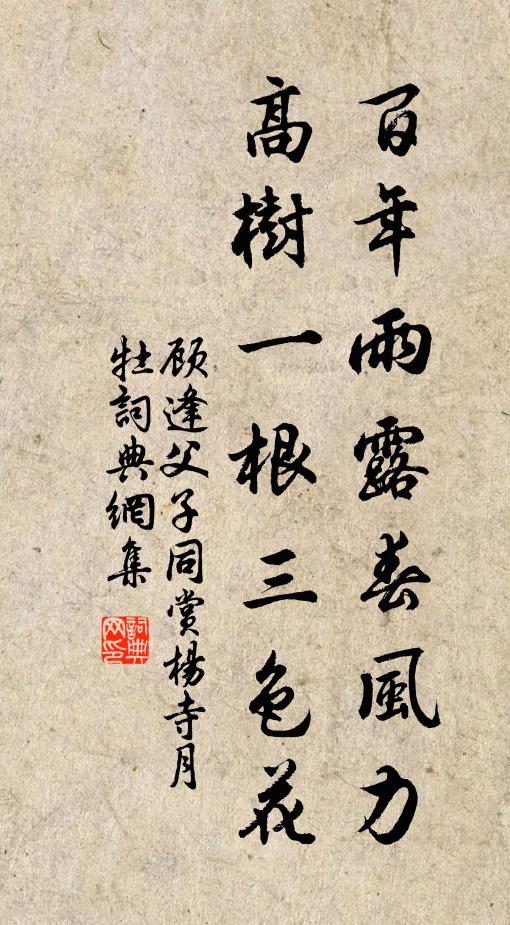 百年雨露春風力
高樹一根三色花
顾逢父子同赏楊寺月
牡詞典網集
詞典
网印